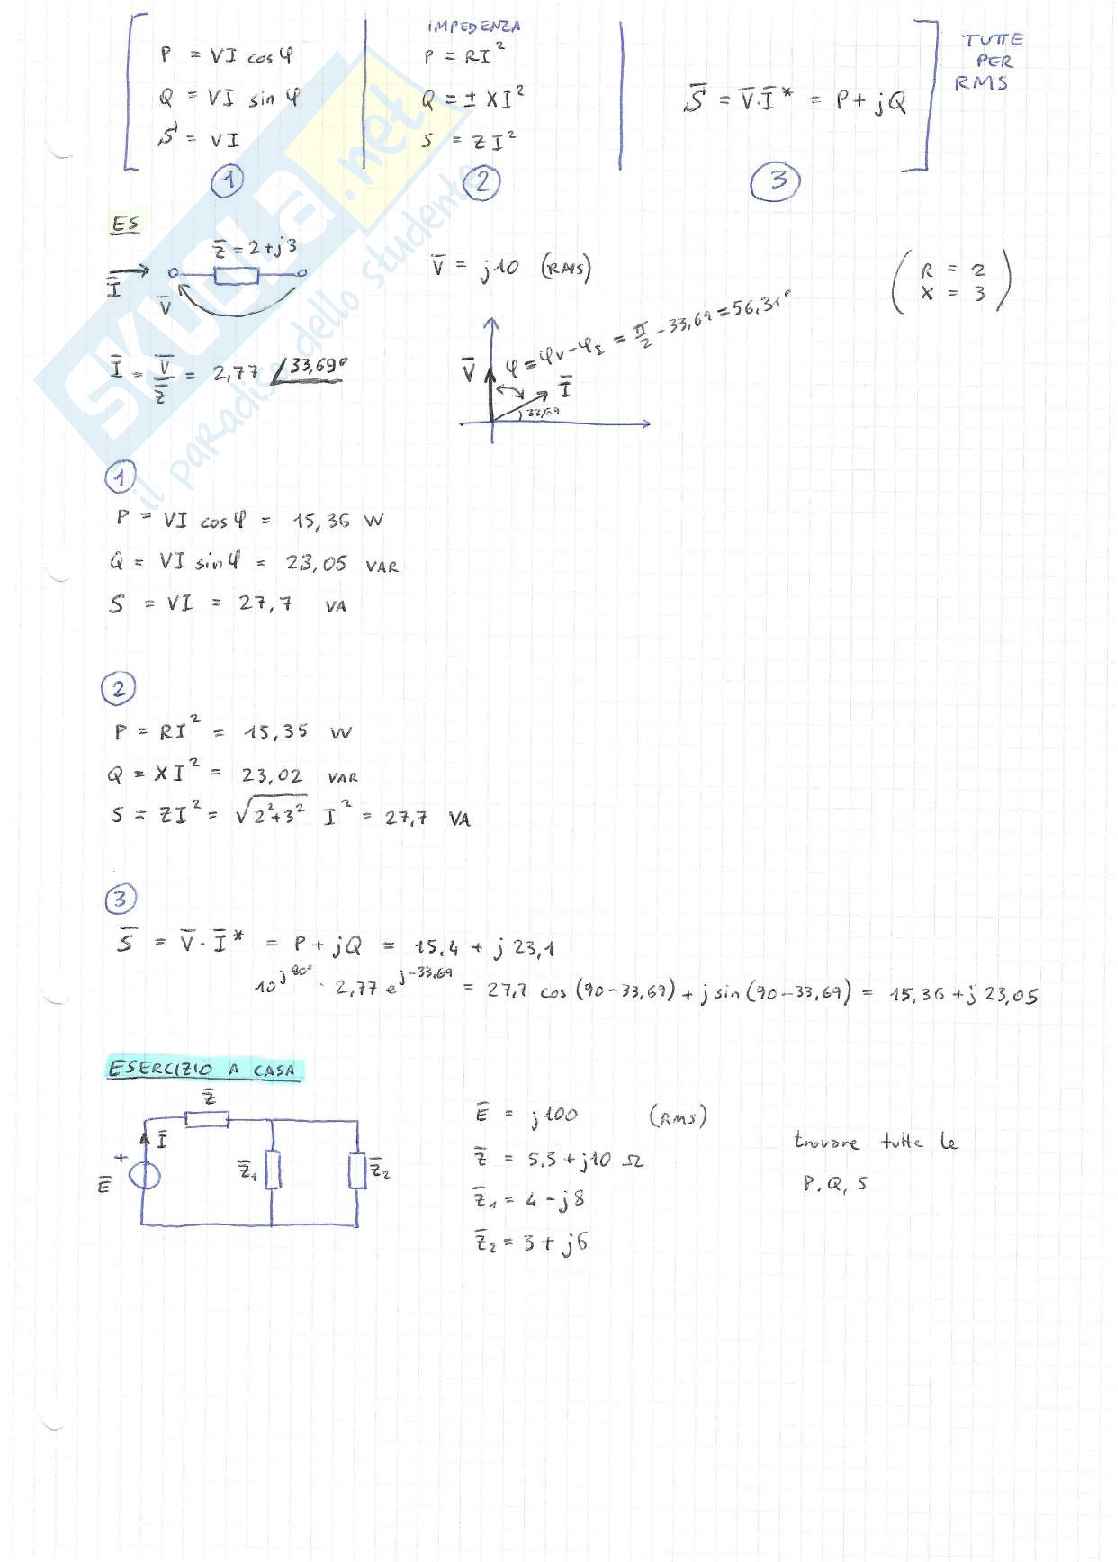 IMPEDENZA
P = VI cos φ
Q = VI sin φ
S = VI
①
P = RI²
Q = ± XI²
S = ZI²
②
S̅ = V̅·I̅* = P + jQ
③
TUTTE
PER
RMS
SKUOLA.net
il paradiso dello studente
ES
Z̅ = 2 + j3
I̅
V̅
V̅ = j10 (RMS)
R = 2
X = 3
I̅ = V̅/Z̅ = 2,77 ∠33,69°
V̅
φ = φV - φI = π/2 - 33,69 = 56,31°
I̅
33,69
①
P = VI cos φ = 15,36 W
Q = VI sin φ = 23,05 VAR
S = VI = 27,7 VA
②
P = RI² = 15,35 W
Q = XI² = 23,02 VAR
S = ZI² = √(2²+3²) I² = 27,7 VA
③
S̅ = V̅·I̅* = P + jQ = 15,4 + j 23,1
10^j90° · 2,77 e^j-33,69 = 27,7 cos (90-33,69) + j sin (90-33,69) = 15,36 + j 23,05
ESERCIZIO A CASA
Z̅
I̅
+
E̅
Z̅₁
Z̅₂
E̅ = j100 (RMS)
Z̅ = 5,5 + j10 Ω
Z̅₁ = 4 - j8
Z̅₂ = 3 + j6
trovare tutte le
P, Q, S